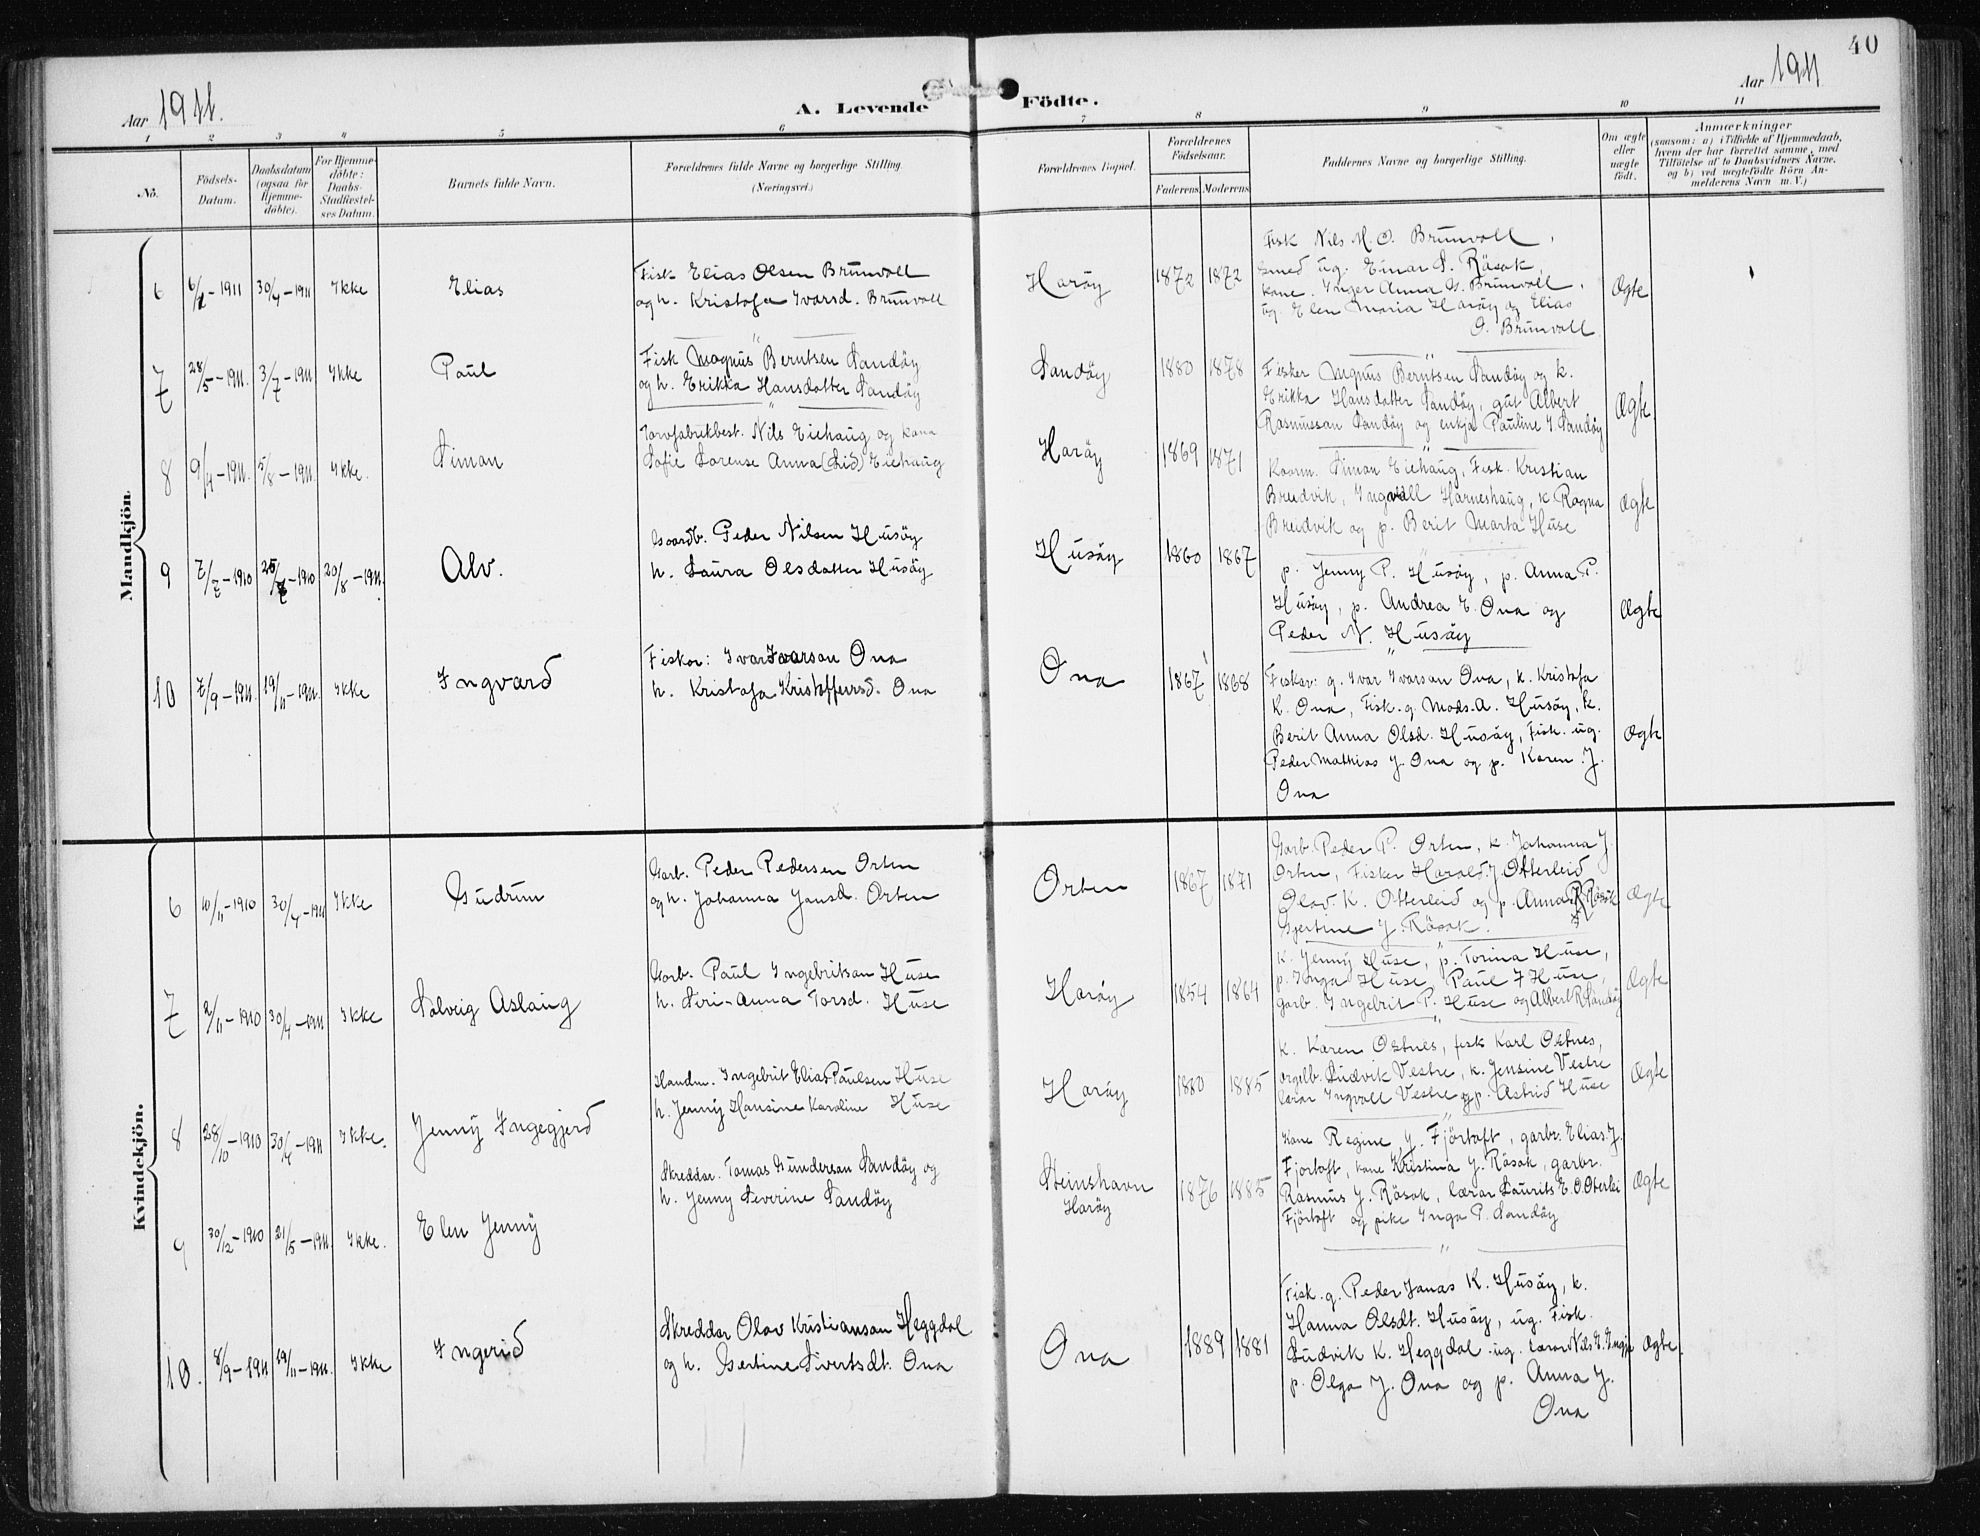 40
Aar 1911.
A. Levende Födte.
Aar 1911
1 2 3 4 5 6 7 8 9 10 11
No.
Födsels-Datum.
Daabsdatum (ogsaa for Hjemme-döbte).
For Hjemme-döbte: Daabs-Stadfæstel-ses Datum.
Barnets fulde Navn.
Forældrenes fulde Navne og borgerlige Stilling. (Næringsvei.)
Forældrenes Bopæl.
Forældrenes Födselsaar.
Faderens. Moderens.
Faddernes Navne og borgerlige Stilling.
Om ægte eller uægte födt.
Anmærkninger
(saasom: a) i Tilfælde af Hjemmedaab,
hvem der har forrettet samme, med
Tilföielse af to Daabsvidners Navne,
og b) ved uægtefödte Börn An-
melderens Navn m. V.)
Mandkjön.
6 6/2-1911 30/4-1911 Ikke Elias
Fisk Elias Olsen Brünvoll
og h. Kristofa Ivarsd. Brünvoll
Haröy 1872 1872
Fisk Nils M. O. Brünvoll,
smed ug. Einar S. Rösok,
kone Inger Anna G. Brünvoll,
ug. Elen Maria Haröy og Elias
O. Brünvoll
Ægte
7 28/5-1911. 3/7-1911 Ikke Paul
Fisk Magnus Berntsen Sandöy
og h. Erikka Hansdatter Sandöy
Sandöy 1880 1878
Fisker Magnus Berntsen Sandöy og k.
Erikka Hansdatter Sandöy, gut Albert
Rasmusson Sandöy og enkja Pauline I. Sandöy
Ægte
8 9/4-1911. 5/8-1911. Ikke. Simon
Torvfabrikbest. Nils Eiehaug og kona
Sofie Lorense Anna (Lid) Eiehaug
Haröy 1869 1871
Kaarm. Simon Eiehaug, Fisk. Kristian
Breidvik, Ingvall Harneshaug, k Ragna
Breidvik og p. Berit Marta Huse
Ægte
9 7/7-1910 20/8-1911. Alv.
Gaardb. Peder Nilsen Husöy
h. Laura Olsdatter Husöy
Husöy 1860 1867
p. Jenny P. Husöy, p. Anna P.
Husöy, p. Andrea E. Ona og
Peder N. Husöy
Ægte
10 7/9-1911. 19/11-1911. Ikke Ingvard
Fisker: Ivar Ivarson Ona
h. Kristofa Kristoffersd. Ona
Ona 1867 1868
Fisker g. Ivar Ivarson Ona, k. Kristofa
K. Ona, Fisk. g. Mads. A. Husöy, k.
Berit Anna Olsd. Husöy, Fisk. ug.
Peder Mathias J. Ona og p. Karen J.
Ona
Ægte
Kvindekjön.
6 10/11-1910 30/4-1911 Ikke Gudrun
Garb. Peder Pedersen Orten
og h. Johanna Jonsd. Orten
Orten 1867 1871
Garb. Peder P. Orten, k. Johanna J.
Orten, Fisker Harald J. Otterleid
Olav. K. Otterleid og p. Anna R. Rösok
Gjertine J. Rösok.
Ægte
7 2/11-1910 30/4-1911 Ikke Solveig Aslaug
Garb. Paul Ingebritson Huse
h. Siri-Anna Torsd. Huse
Haröy 1854 1864
k. Jenny Huse, p. Torina Huse,
p. Inga Huse, Paul I Huse,
garb. Ingebrit P. Huse og Albert R. Sandöy
Ægte
8 28/10-1910 30/4-1911 Ikke. Jenny Ingegjerd
Handm. Ingebrit Elias Paulsen Huse
h. Jenny Hansine Karoline Huse
Haröy 1880 1885
k. Karen Ostnes, fisk Karl Ostnes,
orgelb. Ludvik Vestre, k. Jensine Vestre
lærar Ingvall Vestre og p. Astrid Huse
Ægte
9 30/12-1910 21/5-1911. Ikke. Elen Jenny
Skreddar. Tomas Gunderson Sandöy og
h. Jenny Severine Sandöy
Steinshavn
Haröy 1876 1885
Kone Regine J. Fjörtoft, garbr. Elias J.
Fjortoft, kone Kristina J. Rösok, garbr.
Rasmus J. Rösok, lærar Laurits E. O. Oterlei
Fjörtoft og pike Inga P. Sandöy
Ægte
10. 8/9-1911 19/11-1911. Ikke Ingerid
Skreddar Olav Kristianson Heggdal
og h. Gjertine Sivertsdt. Ona
Ona 1889 1881
Fisk. g. Peder Jonas K. Husöy, k.
Hanna Olsdt. Husöy, ug. Fisk.
Ludvik K. Heggdal ug. lærar Nils
p. Olga J. Ona og p. Anna J.
Ona
Ægte.